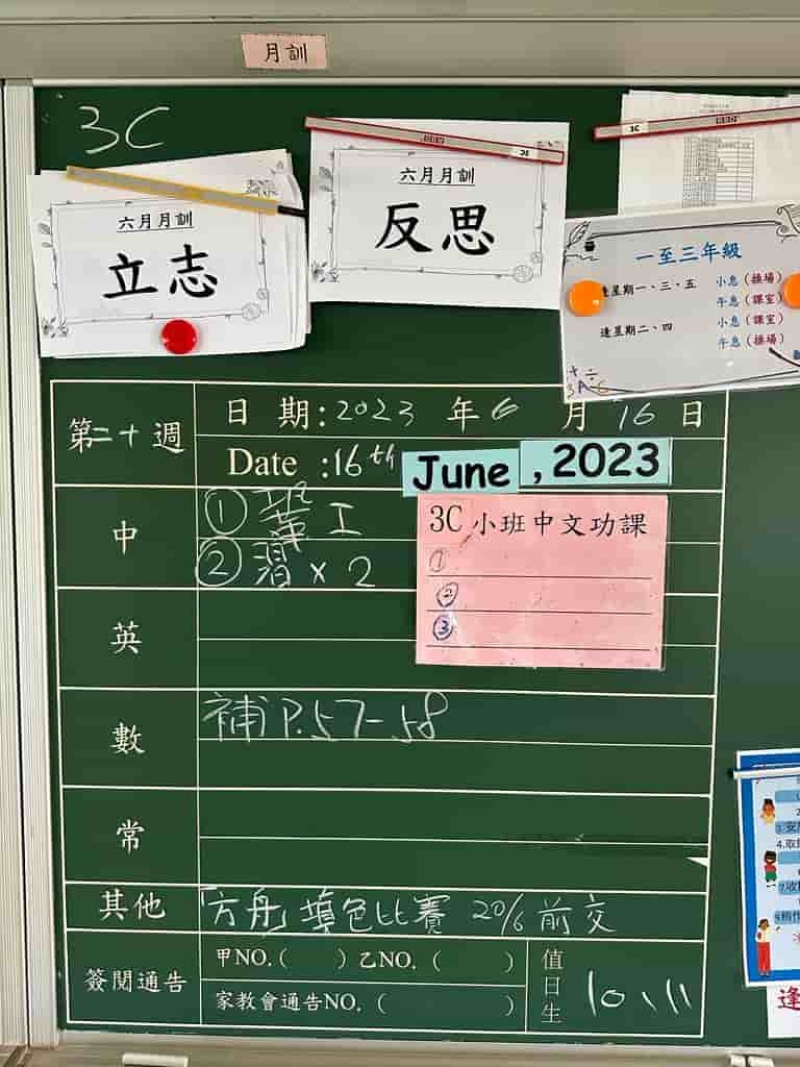 月訓
3C
六月月訓
立志
六月月訓
反思
3C
一至三年級
逢星期一、三、五
小息（操場）
午息（課室）
逢星期二、四
小息（課室）
午息（操場）
第二十週
日期:2023年6月16日
Date :16th June , 2023
中
① 工
② 習 x 2
3C 小班中文功課
①
②
③
英
數
補P.57-58
常
其他
「方舟」填色比賽 20/6 前交
簽閱通告
甲NO.( ) 乙NO. ( )
家教會通告NO. ( )
值日生
10、11
逢